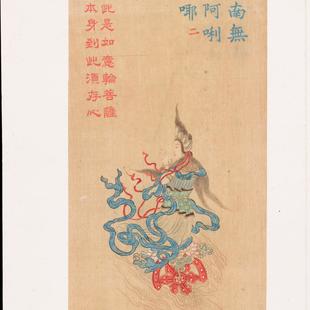 南無
阿唎
㖿二
此是如意輪菩薩
本身到此須存心